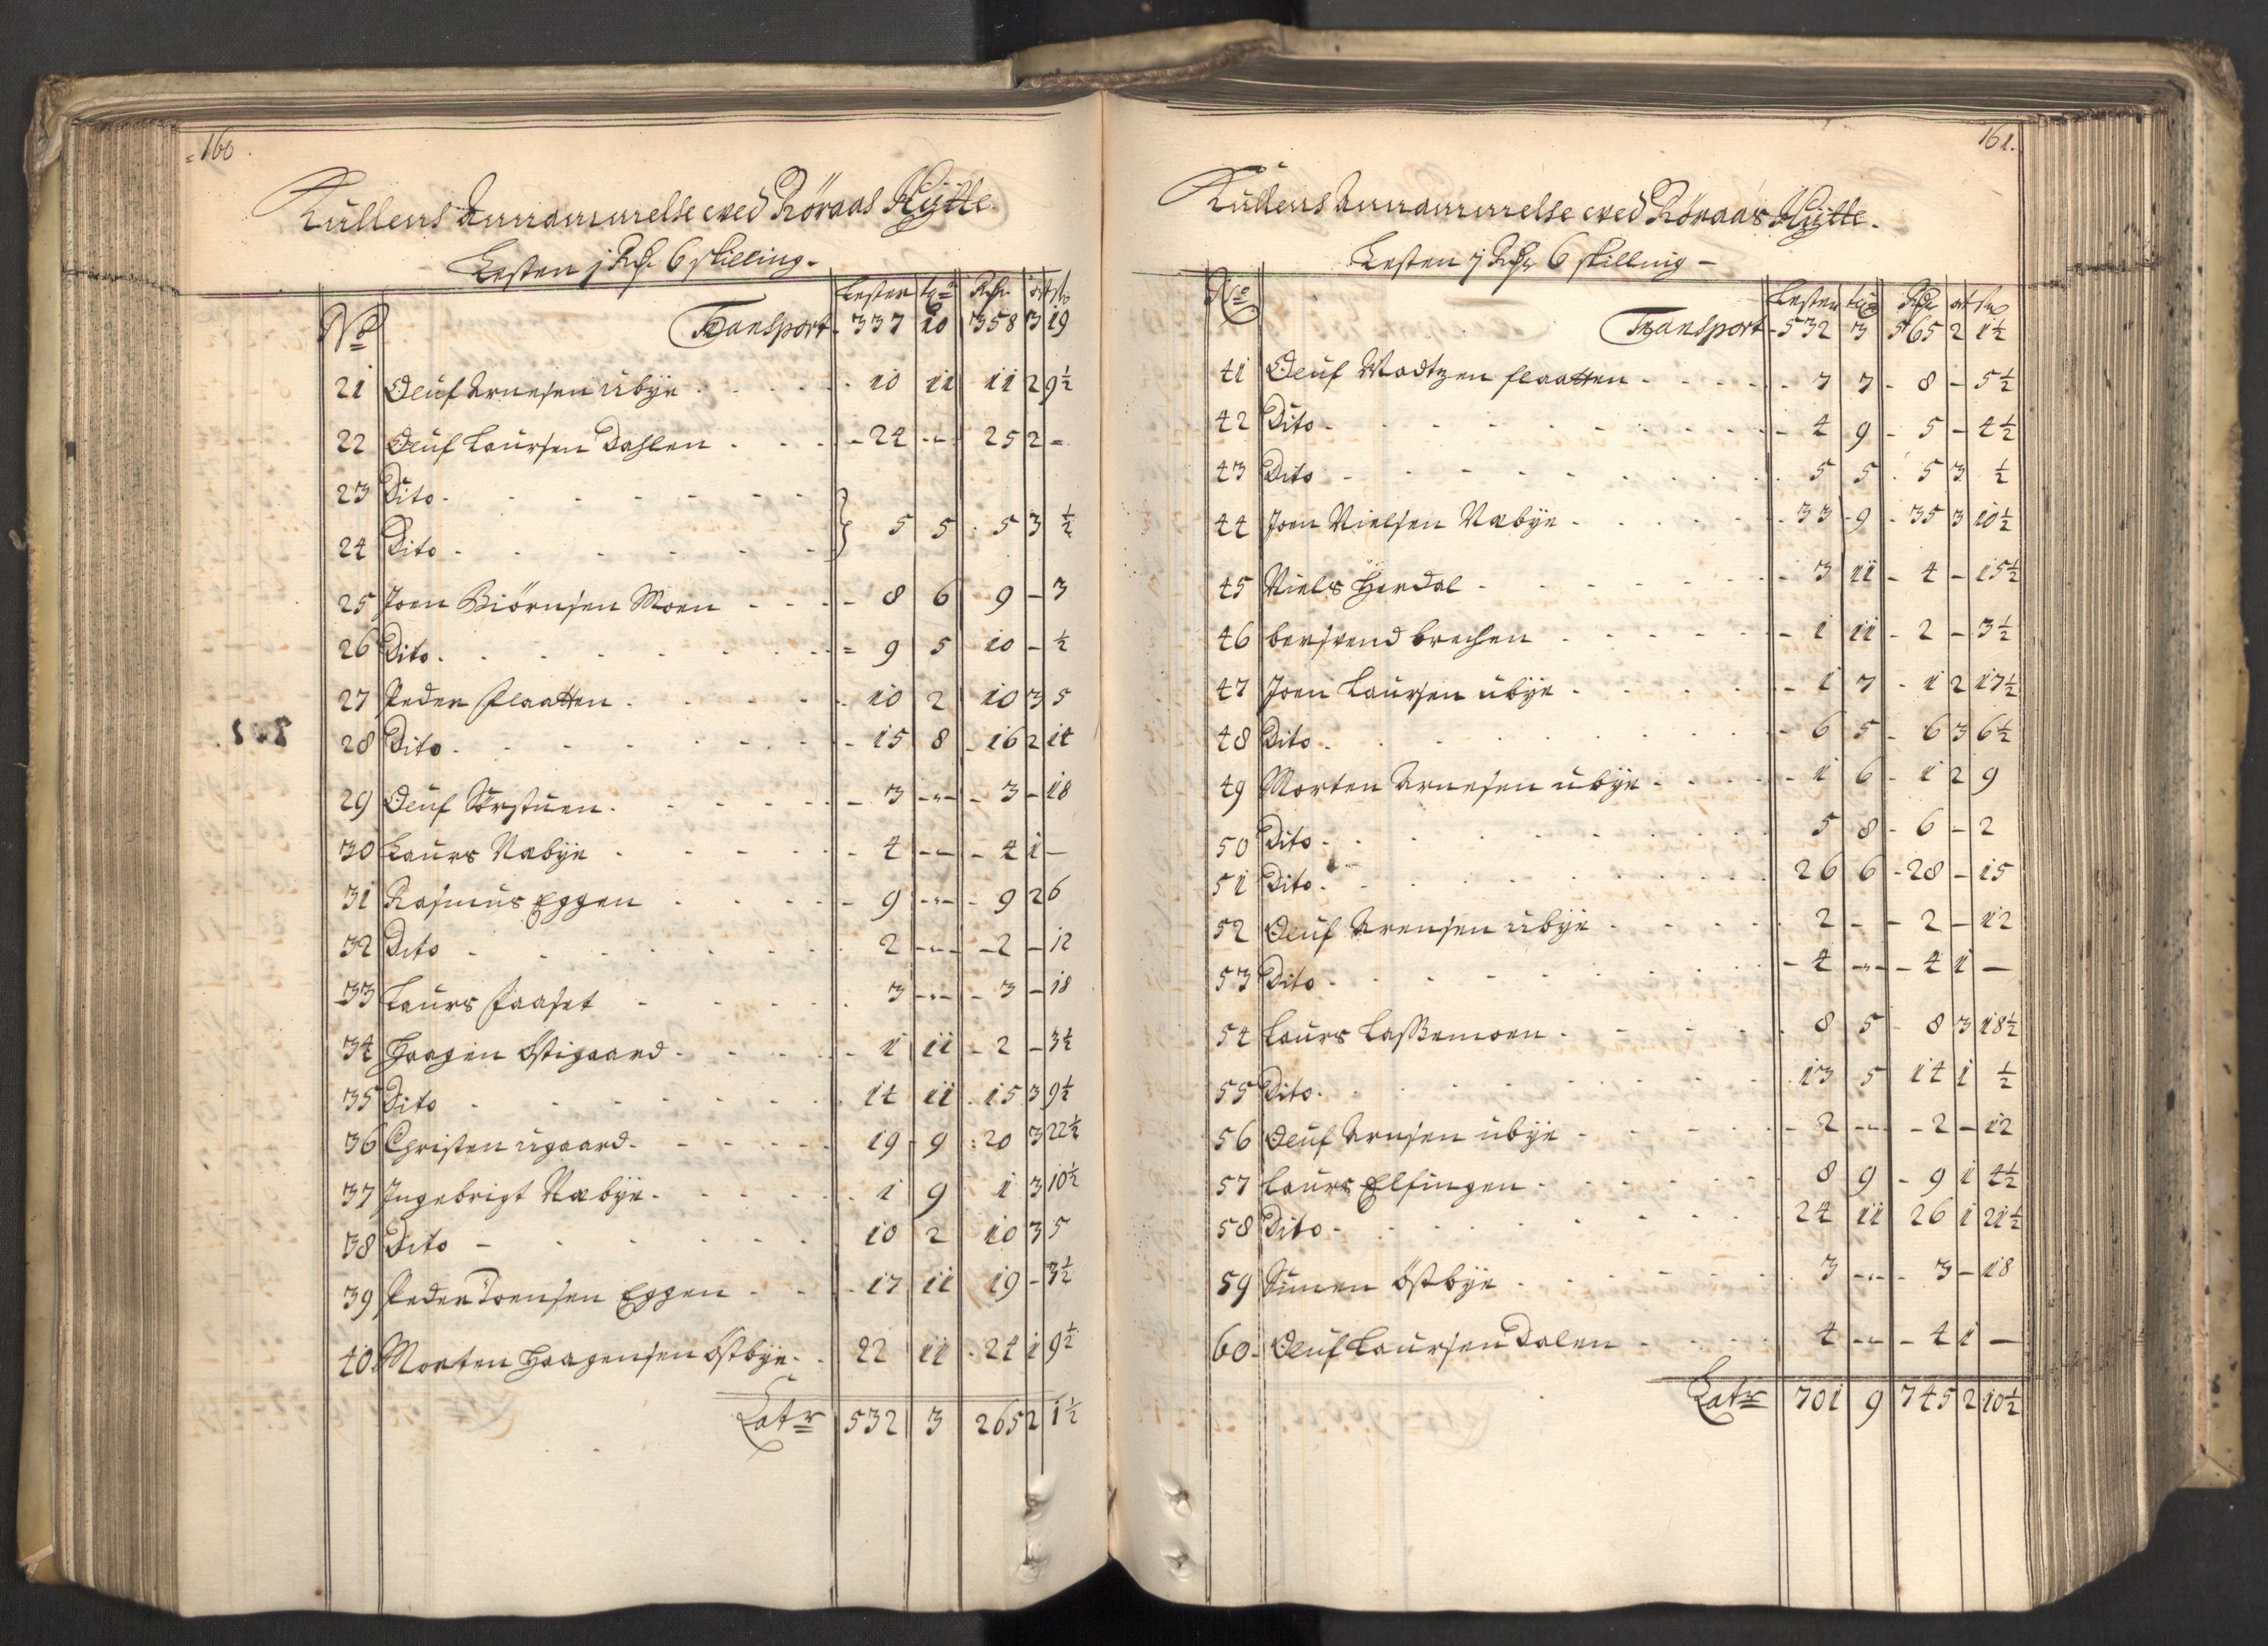 160
Kullens Annammelse wed Röraas Hÿtte.
Lesten j Rdr 6 skilling.
Lester tr Rdr ort sk
No Transport 337 10 358 3 19
21 Oluf Arnesen übÿe 10 11 11 2 9½
22 Oluf Laursen Dahlen 24 - 25 2 -
23 Dito
24 Dito } 5 5 5 3 ½
25 Joen Biörnsen Moen 8 6 9 - 3
26 Dito 9 5 10 - ½
27 Peder Flaatten 10 2 10 3 5
28 Dito 15 8 16 2 14
29 Oluf Sörstuen 3 - 3 - 18
30 Laurs Nabÿe 4 - 4 1 -
31 Rasmus Eggen 9 - 9 2 6
32 Dito 2 - 2 - 12
33 Laurs Faaset 3 - 3 - 18
34 Haagen östigaard 1 11 2 - 3½
35 Dito 14 11 15 3 9½
36 Christen ugaard 19 9 20 3 22½
37 Ingebrigt Nabÿe 1 9 1 3 10½
38 Dito 10 2 10 3 5
39 Peder Joensen Eggen 17 11 19 - 3½
40 Morten Haagensen östbÿe 22 11 24 1 9½
Latr 532 3 265 2 1½
161.
Kullens Annammelse wed Röraas Hÿtte.
Lesten j Rdr 6 skilling
No Lester tr Rdr ort sk
Transport 532 3 565 2 1½
41 Oluf Madtzen flaatten 7 7 8 - 5½
42 Dito 4 9 5 - 4½
43 Dito 5 5 5 3 ½
44 Joen Nielsen Nabÿe 33 9 35 3 10½
45 Niels Herdal 3 11 4 - 15½
46 bersvend brechen 1 11 2 - 3½
47 Joen Laursen übÿe 1 7 1 2 17½
48 Dito 6 5 6 3 6½
49 Morten Arnesen übÿe 1 6 1 2 9
50 Dito 5 8 6 - 2
51 Dito 26 6 28 - 15
52 Oluf Arensen übÿe 2 - 2 - 12
53 Dito 4 - 4 1 -
54 Laurs Lassemoen 8 5 8 3 18½
55 Dito 13 5 14 1 ½
56 Oluf Arnsen übÿe 2 - 2 - 12
57 Laurs Elfingen 8 9 9 1 4½
58 Dito 24 11 26 1 21½
59 Simen östbÿe 3 - 3 - 18
60 Oluf Laursen Dalen 4 - 4 1 -
Latr 701 9 745 2 10½